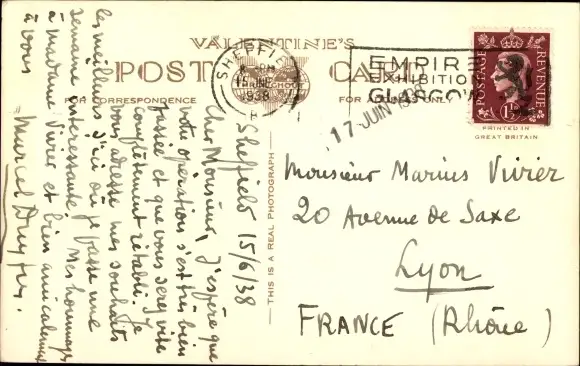 VALENTINE'S
POST CARD
FOR CORRESPONDENCE
FOR ADDRESS ONLY
SHEFFIELD
15 JNE
1938
EMPIRE
EXHIBITION
GLASGOW
17 JUIN 1938
POSTAGE
REVENUE
1½
PRINTED IN
GREAT BRITAIN
THIS IS A REAL PHOTOGRAPH
Sheffield 15/6/38
Cher Monsieur, J'espère que
votre opération s'est très bien
passée et que vous serez vite
complètement rétabli. Je
vous adresse mes souhaits
les meilleurs d'ici où je passe une
semaine intéressante. Mes hommages
à madame Vivier et bien amicalement
à vous
Marcel
Monsieur Marius Vivier
20 Avenue de Saxe
Lyon
FRANCE (Rhône)